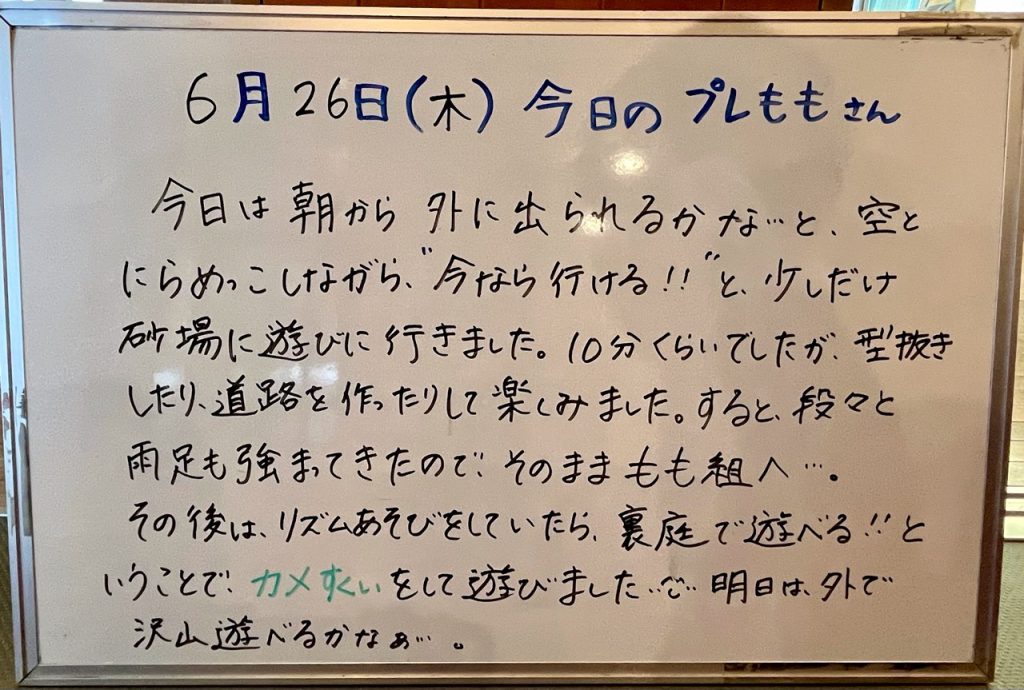 6月26日(木) 今日の プレももさん
今日は朝から 外に出られるかな…と、空と
にらめっこしながら、"今なら行ける!!"と、少しだけ
砂場に遊びに行きました。10分くらいでしたが、型抜き
したり、道路を作ったりして楽しみました。すると、段々と
雨足も強まってきたので、そのまま もも組へ…。
その後は、リズムあそびをしていたら、裏庭で遊べる!!と
いうことで、カメすくいをして遊びました 明日は、外で
沢山遊べるかなぁ…。